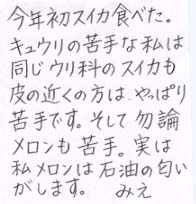 今年初スイカ食べた。
キュウリの苦手な私は
同じウリ科のスイカも
皮の近くの方は、やっぱり
苦手です。そして勿論
メロンも苦手。実は
私メロンは石油の匂い
がします。 みえ